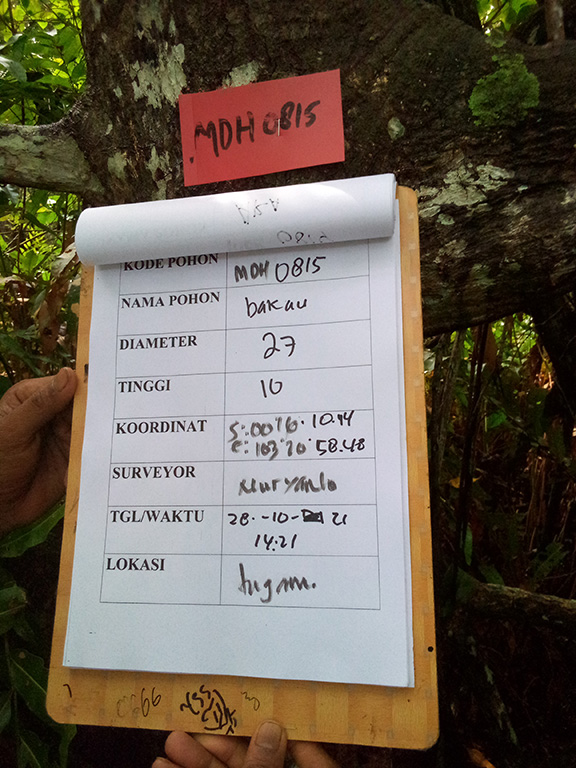 MDH 0815
KODE POHON MDH 0815
NAMA POHON bakau
DIAMETER 27
TINGGI 10
KOORDINAT S:
E: 103 70 58.48
SURVEYOR
TGL/WAKTU 28 -10- 21
14:21
LOKASI